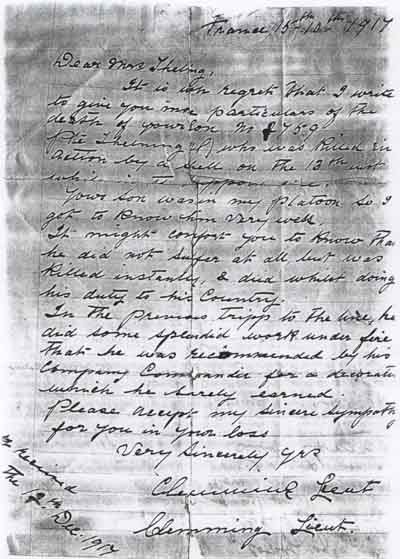 France 15th 10th 1917
Dear Mrs Theling,
It is with regret that I write
to give you more particulars of the
death of your son N 8759
Pte Theling who was killed in
action by a shell on the 13th inst
while in the support line.
Your son was in my platoon so I
got to know him very well.
It might comfort you to know that
he did not sufer at all but was
killed instantly, & died whilst doing
his duty to his Country.
In the previous tripp to the line, he
did some splendid work under fire
that he was recommended by his
Company Commander for a decorati
which he surely earned.
Please accept my sincere sympathy
for you in your loss
Very Sincerely Yrs
Clemming Leut
Clemming Lieut.
received
the 12th Dec. 1917